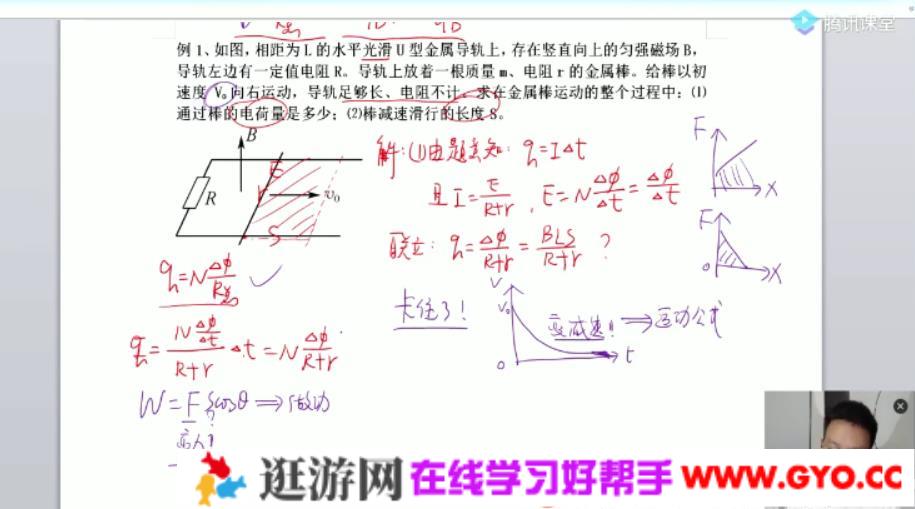 腾讯课堂
例 1、如图，相距为 L 的水平光滑 U 型金属导轨上，存在竖直向上的匀强磁场 B，
导轨左边有一定值电阻 R。导轨上放着一根质量 m、电阻 r 的金属棒。给棒以初
速度 V₀ 向右运动，导轨足够长、电阻不计。求在金属棒运动的整个过程中：⑴
通过棒的电荷量是多少；⑵棒减速滑行的长度 S。
B
R
r
v₀
S
解：(1)由题意知：q=IΔt
且 I=E/(R+r)，E=NΔΦ/Δt=ΔΦ/Δt
联立：q=ΔΦ/(R+r)=BLS/(R+r) ?
F
X
F
0
X
q=NΔΦ/R总
q=(NΔΦ/Δt)/(R+r)·Δt=NΔΦ/(R+r)
卡住了！
V
V₀
0
t
变减速!! ⇒运动公式
W=FScosθ⇒做功
逛游网 在线学习好帮手 www.GYO.CC